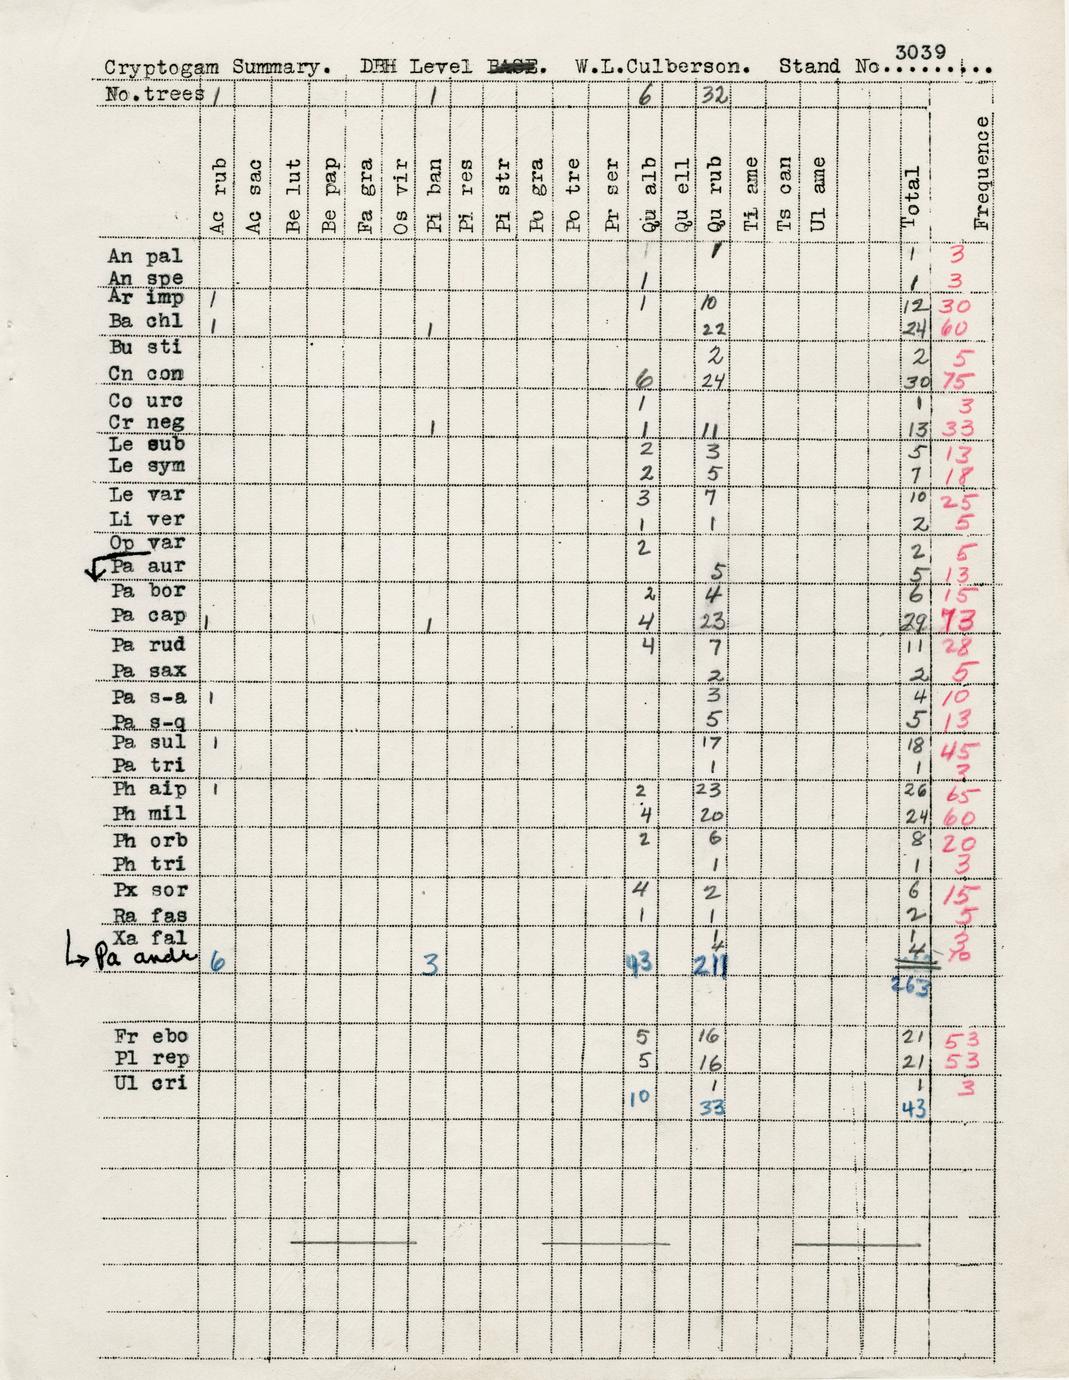 3039
Cryptogam Summary. DBH Level BASE. W.L.Culberson. Stand No..........
No.trees 1 1 6 32
Ac rub Ac sac Be lut Be pap Fa gra Os vir Pi ban Pi res Pi str Po gra Po tre Pr ser Qu alb Qu ell Qu rub Ti ame Ts can Ul ame Total Frequence
An pal 1 1 3
An spe 1 1 3
Ar imp 1 1 10 12 30
Ba chl 1 1 22 24 60
Bu sti 2 2 5
Cn con 6 24 30 75
Co urc 1 1 3
Cr neg 1 1 11 13 33
Le sub 2 3 5 13
Le sym 2 5 7 18
Le var 3 7 10 25
Li ver 1 1 2 5
Op var 2 2 5
Pa aur 5 5 13
Pa bor 2 4 6 15
Pa cap 1 1 4 23 29 73
Pa rud 4 7 11 28
Pa sax 2 2 5
Pa s-a 1 3 4 10
Pa s-q 5 5 13
Pa sul 1 17 18 45
Pa tri 1 1 3
Ph aip 1 2 23 26 65
Ph mil 4 20 24 60
Ph orb 2 6 8 20
Ph tri 1 1 3
Px sor 4 2 6 15
Ra fas 1 1 2 5
Xa fal 1 1 3
Pa andr 4 4
6 3 43 211
263
Fr ebo 5 16 21 53
Pl rep 5 16 21 53
Ul cri 1 1 3
10 33 43